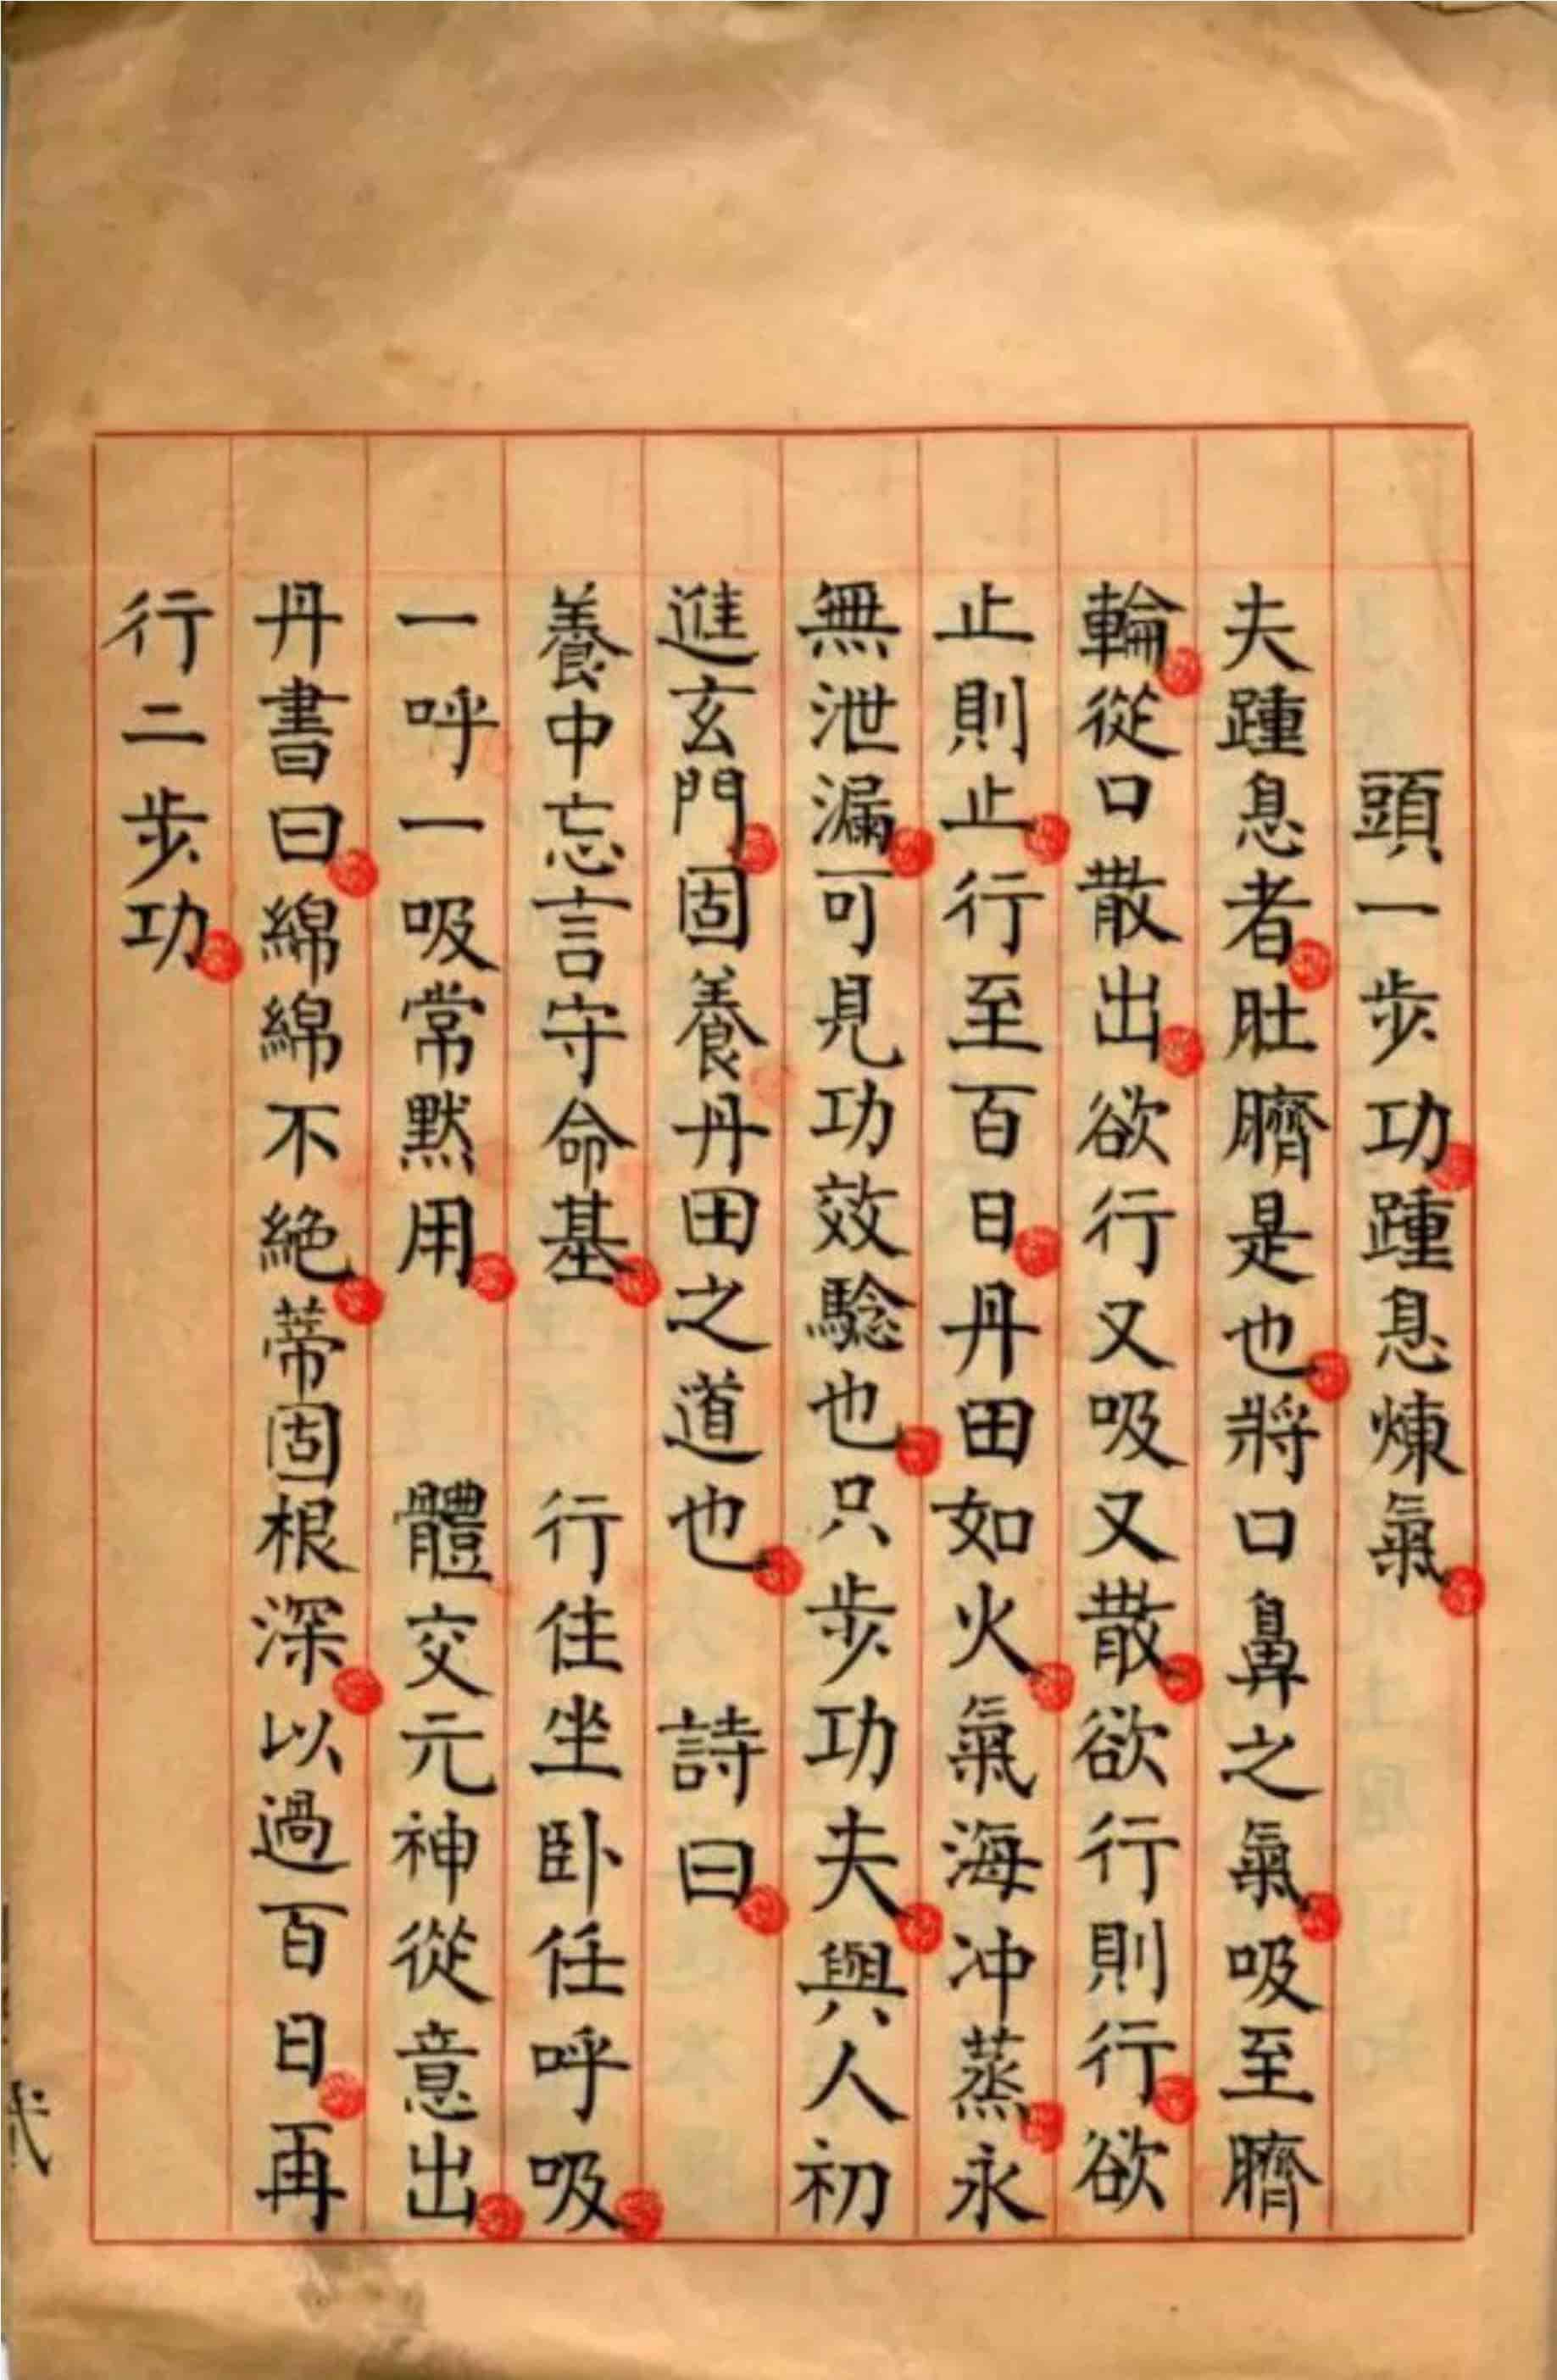 頭一步功踵息煉氣
夫踵息者肚臍是也將口鼻之氣吸至臍
輪從口散出欲行又吸又散欲行則行欲
止則止行至百日丹田如火氣海冲蒸永
無泄漏可見功效驗也只步功夫與人初
進玄門固養丹田之道也 詩曰
養中忘言守命基 行住坐卧任呼吸
一呼一吸常默用 體交元神從意出
丹書曰綿綿不絕蒂固根深以過百日再
行二步功